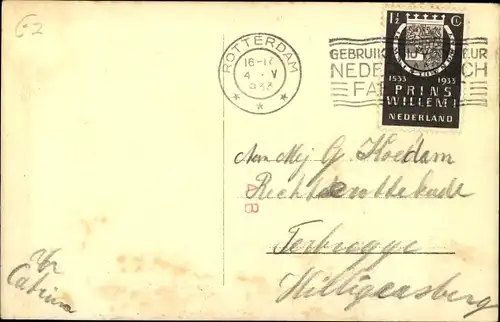 ROTTERDAM
16-17
4 V
1933
GEBRUIK
NEDERL
FA
1½ C
1533 1933
PRINS
WILLEM I
NEDERLAND
Aan Mej G. Koedam
Rechter rottekade
Terbregge
Hilligersberg